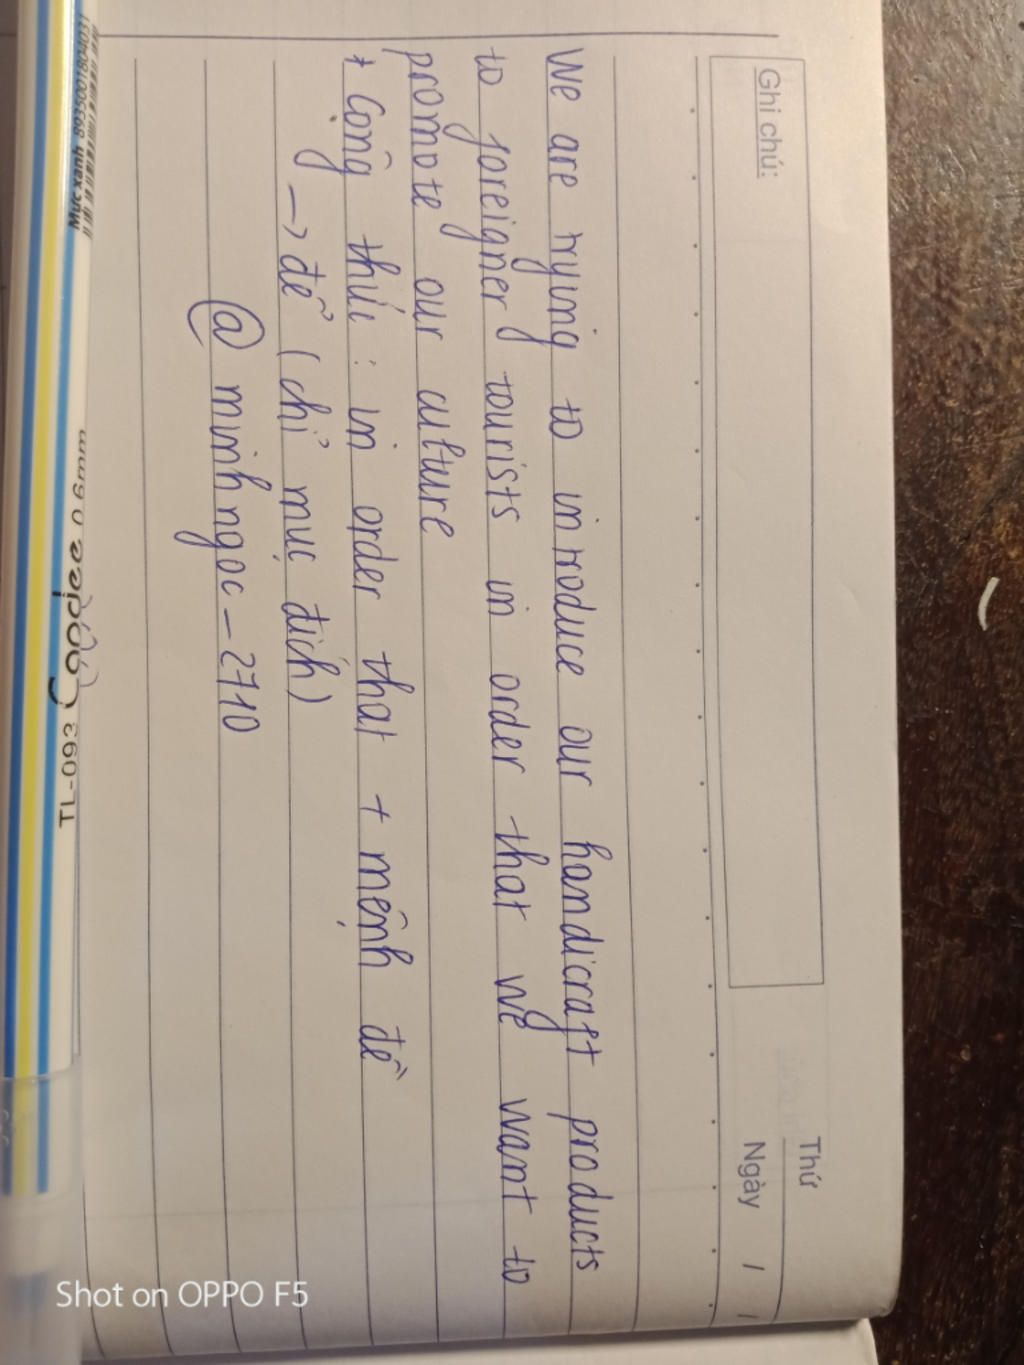 Thứ
Ngày / /
Ghi chú:
We are trying to introduce our handicraft products
to foreigner tourists in order that we want to
promote our culture
* Công thức : in order that + mệnh đề
→ để (chỉ mục đích)
@ minhngoc-2710
Mực xanh 8935001804031
TL-093 Goodee 0.6mm
Shot on OPPO F5